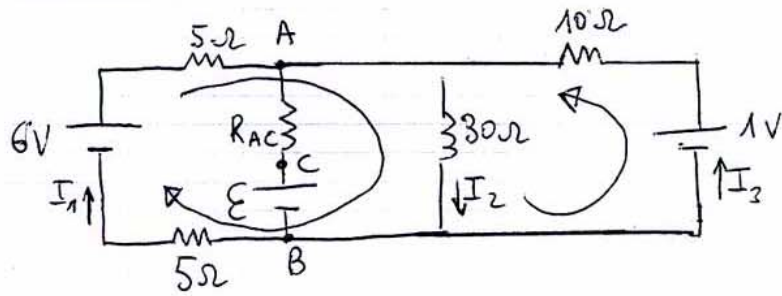 5Ω A 10Ω
6V R_AC 30Ω 1V
C
I₁ ε I₂ I₃
5Ω B